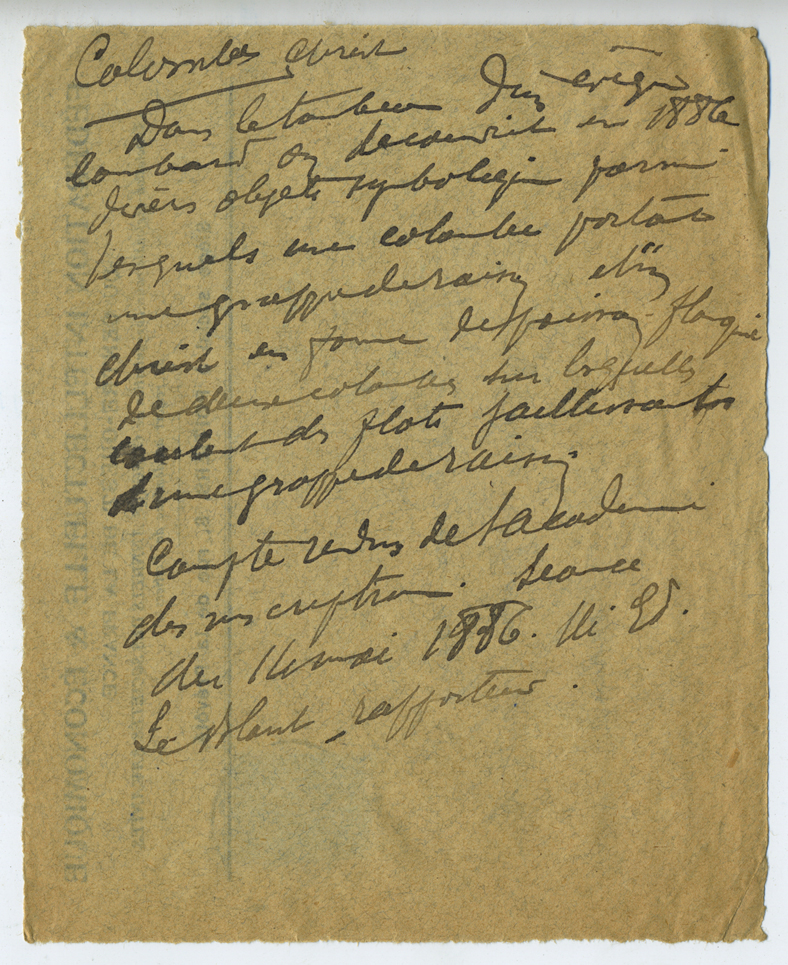 Colombes Christ
Dans le tombeau d'un évêque
lombard on découvrit en 1886
divers objets symboliques parmi
lesquels une colombe portant
une grappe de raisin et un
Christ en forme de poisson flanqué
de deux colombes sur lesquelles
coulent des flots jaillissants
d'une grappe de raisin
Compte rendus de l'Academie
des inscriptions. Seance
du 14 mai 1886. Mr Ed.
Le Blant rapporteur.
FEDERATION INTELLECTUELLE & ECONOMIQUE
DE LA FRANCE